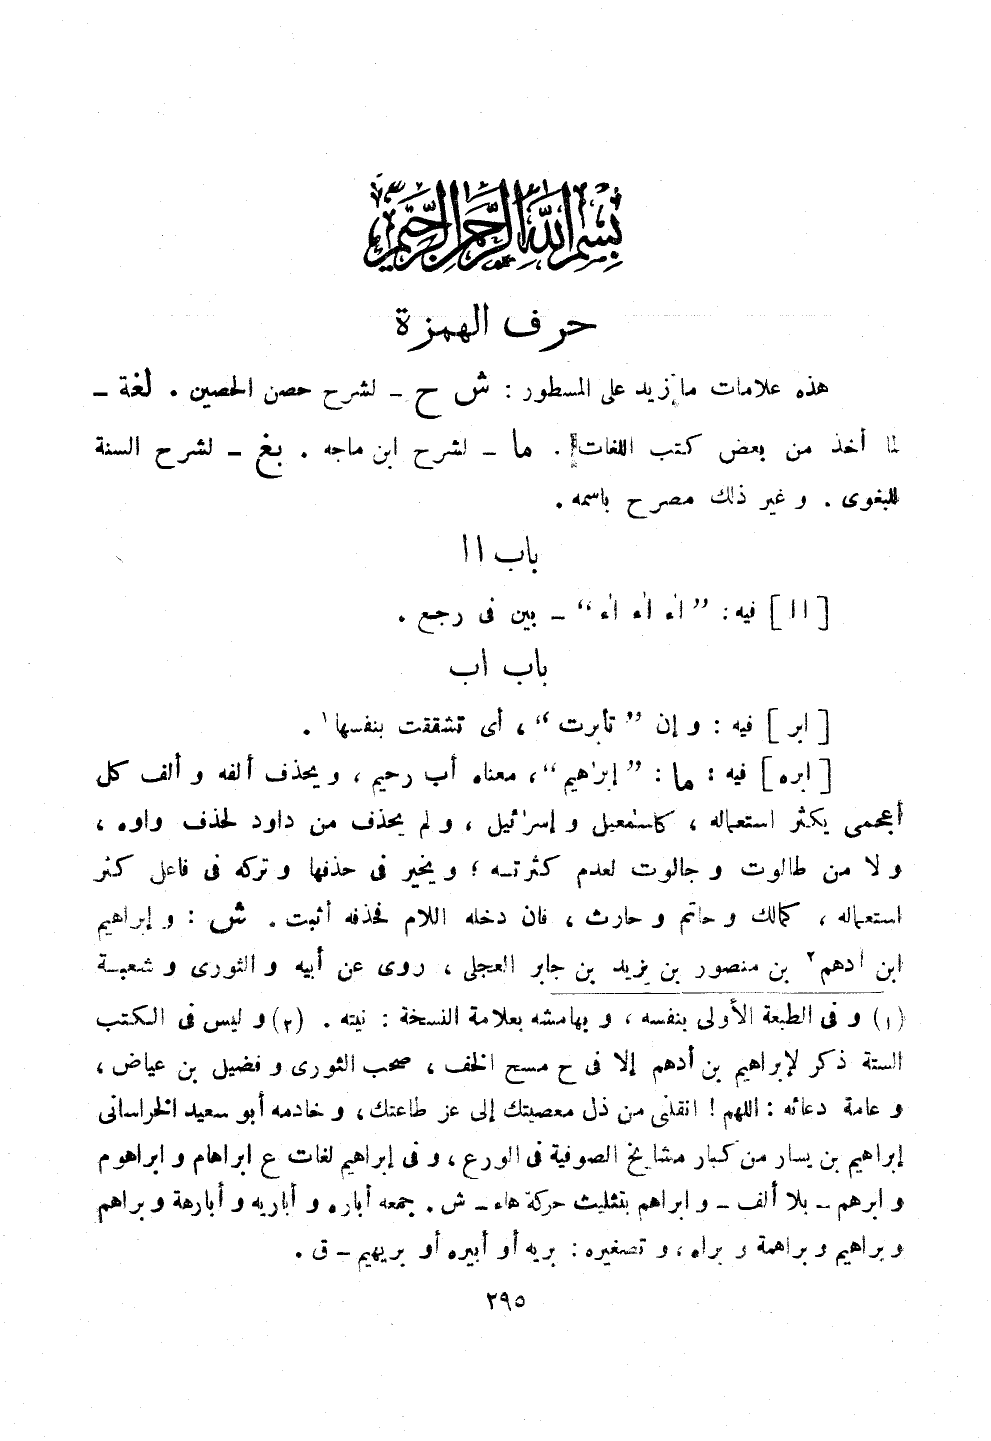 بسم الله الرحمن الرحيم
حرف الهمزة
هذه علامات ما زيد على المسطور : ش ح – لشرح حصن الحصين . لغة –
لما أخذ من بعض كتب اللغات . ما – لشرح ابن ماجه . بغ – لشرح السنة
للبغوى . و غير ذلك مصرح باسمه .
باب اا
[ اا ] فيه : ” اٰء اٰء اٰء “ – بين فى رجع .
باب اب
[ ابر ] فيه : و إن ” تأبرت “ ، أى تشققت بنفسها١ .
[ ابره ] فيه : ما : ” إبرٰهيم “ ، معناه أب رحيم ، و يحذف ألفه و ألف كل
أعجمى يكثر استعماله ، كاسمٰعيل و إسرٰئيل ، و لم يحذف من داود لحذف واوه ،
و لا من طالوت و جالوت لعدم كثرتـه ؛ و يخير فى حذفها و تركه فى فاعل كثر
استعماله ، كمالك و حاتم و حارث ، فان دخله اللام فحذفه أثبت . ش : و إبراهيم
ابن أدهم٢ بن منصور بن يزيد بن جابر العجلى ، روى عن أبيه و الثورى و شعبـة
(١) و فى الطبعة الأولى بنفسه ، و بهامشه بعلامة النسخة : نيته . (٢) و ليس فى الكتب
الستة ذكر لإبراهيم بن أدهم إلا فى ح مسح الخف ، صحب الثورى و فضيل بن عياض ،
و عامة دعائه : اللهم ! انقلنى من ذل معصيتك إلى عز طاعتك ، و خادمه أبو سعيد الخراسانى
إبراهيم بن يسار من كبار مشايخ الصوفية فى الورع ، و فى إبراهيم لغات ع ابراهام و ابراهوم
و ابرهم – بلا ألف – و ابراهم بتثليث حركة هاء – ش . جمعه أباره و أباريه و أبارهة و براهم
و براهيم و براهمة و براه ، و تصغيره : بريه أو أبيره أو بريهيم – ق .
٢٩٥